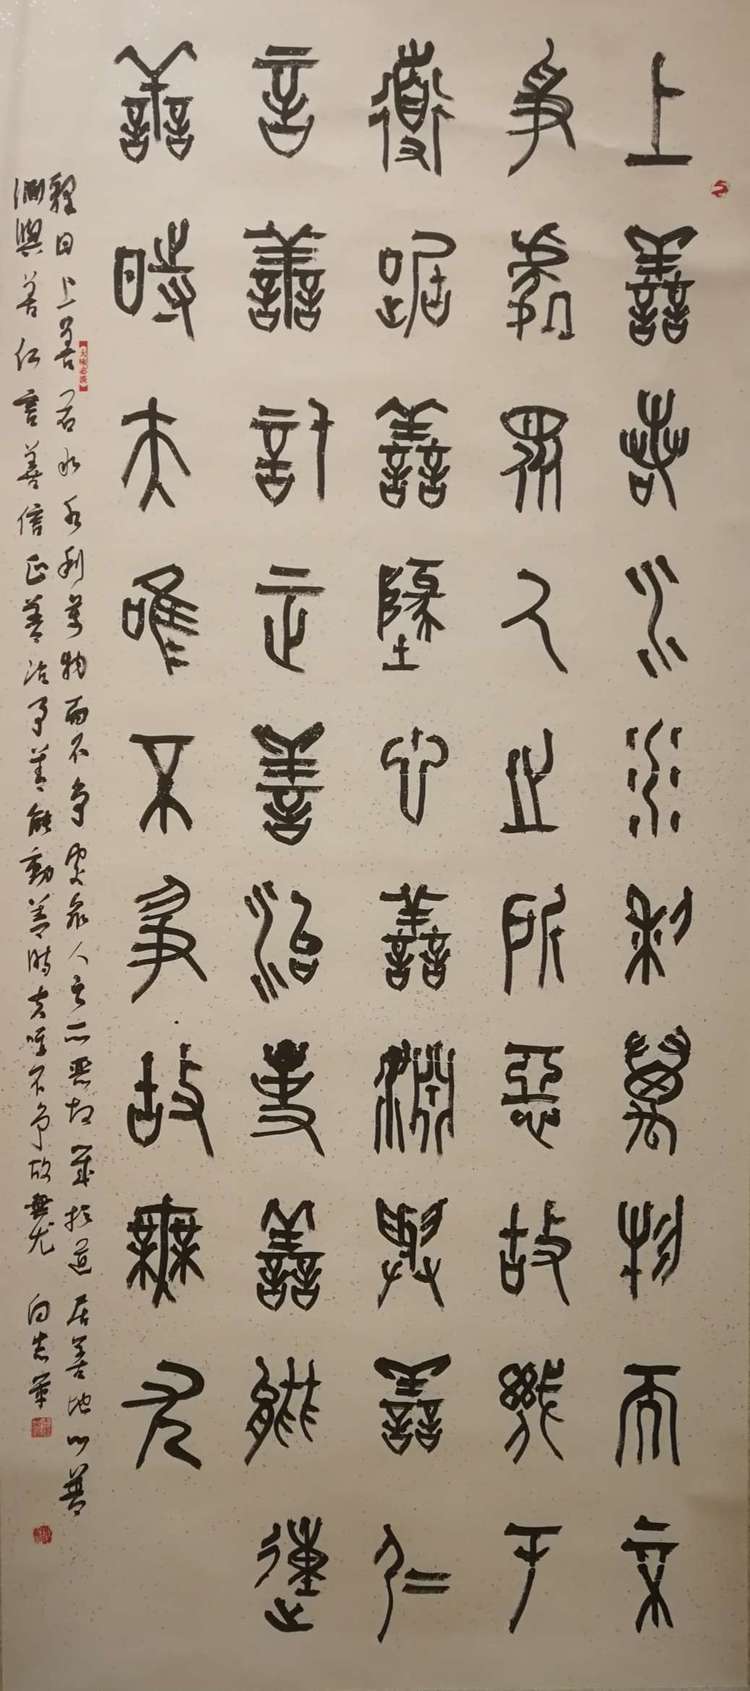 上善若水水利萬物而不
爭處眾人之所惡故幾于
道居善地心善淵與善仁
言善信正善治事善能動
善時夫唯不爭故無尤
釋曰上善若水水利萬物而不争處眾人之所惡故幾於道居善地心善
淵與善仁言善信正善治事善能動善時夫唯不争故無尤